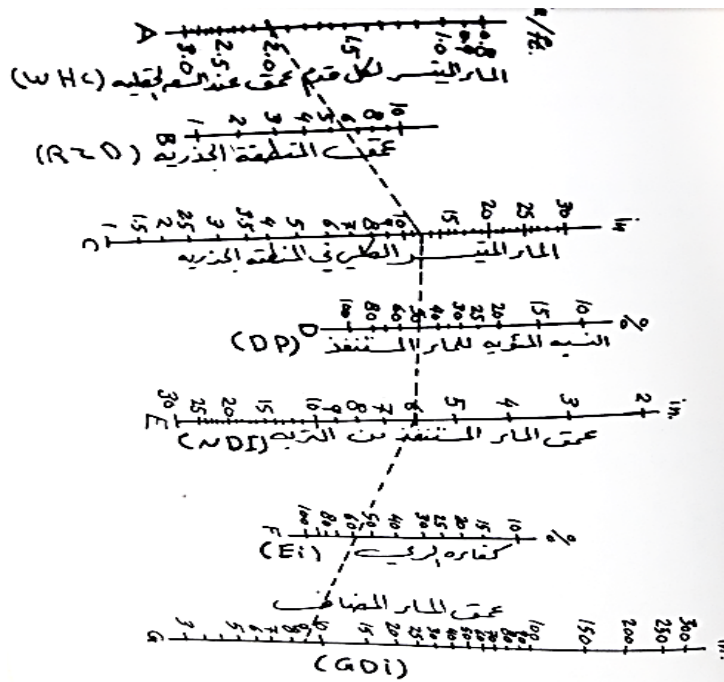 A 3.0 2.5 2.0 1.5 1.0 0.9 0.8 /ft.
الماء الميسر لكل قدم عمق عند السعه الحقليه (WHC)
B 1 2 3 4 5 6 8 10
عمق المنطقة الجذريه (RZD)
C 1 1.5 2 2.5 3 3.5 4 5 6 7 8 9 10 15 20 25 30 in
الماء الميسر الكلي في المنطقه الجذريه
D 100 80 60 50 40 30 25 20 15 10 %
النسبه المئويه للماء المستنفذ (DP)
E 30 25 20 15 10 9 8 7 6 5 4 3 2 in.
عمق الماء المستنفذ من التربه (NDI)
F 100 80 60 50 40 30 25 20 15 10 %
كفاءه الري (Ei)
عمق الماء المضاف
G 3 5 6 7 8 9 10 15 20 25 30 40 50 60 70 80 90 100 150 200 250 300 in.
(GDi)